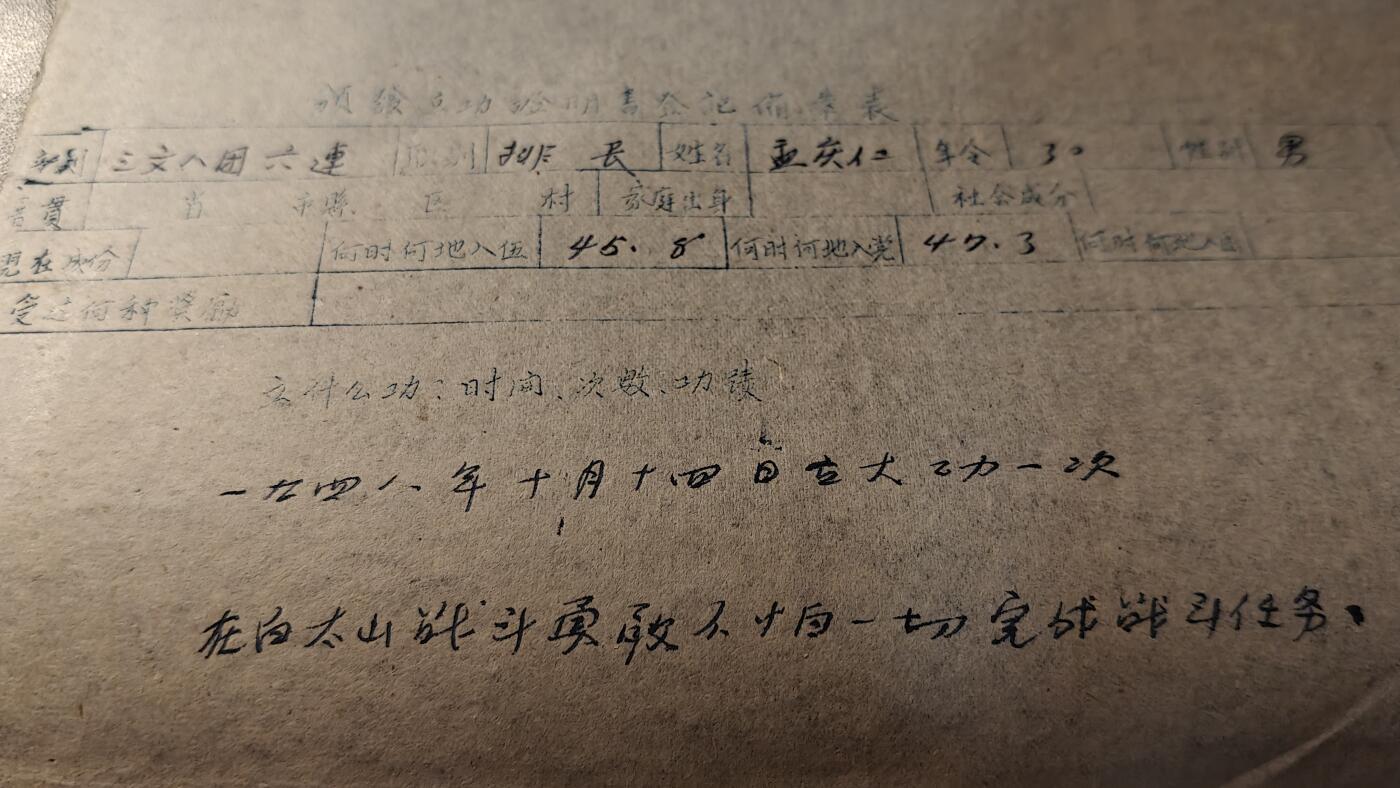 颁给立功证明书登记备案表
部别 三六八团六連 职别 排長 姓名 孟庆仁 年令 30 性别 男
籍貫 省 市縣 区 村 家庭出身 社会成分
現在成份 何时何地入伍 45.8 何时何地入党 47.3 何时何地入团
受过何种奖励
立什么功:时间、次数、功績
一九四八年十月十四日立大功一次
在白太山战斗勇敢不怕一切完成战斗任务。